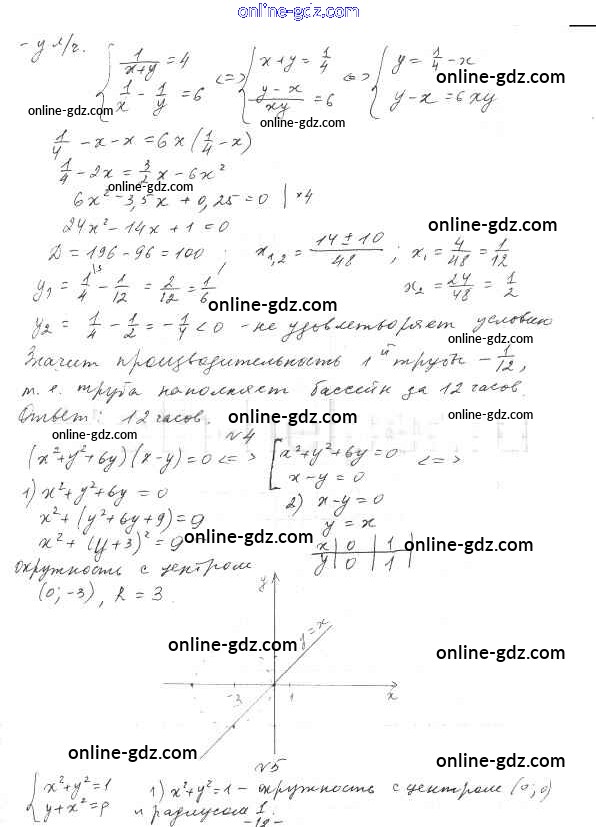 online-gdz.com
- y м/ч. { 1/(x+y) = 4 <=> { x+y = 1/4 <=> { y = 1/4 - x
1/x - 1/y = 6 (y-x)/xy = 6 y-x = 6xy
online-gdz.com
online-gdz.com
online-gdz.com
1/4 - x - x = 6x(1/4 - x)
1/4 - 2x = 3/2 x - 6x²
online-gdz.com
6x² - 3,5x + 0,25 = 0 | ×4
24x² - 14x + 1 = 0
online-gdz.com
D = 196 - 96 = 100 ; x₁,₂ = (14 ± 10)/48 ; x₁ = 4/48 = 1/12
y₁ = 1/4 - 1/12 = 2/12 = 1/6 x₂ = 24/48 = 1/2
online-gdz.com
y₂ = 1/4 - 1/2 = -1/4 < 0 - не удовлетворяет условию
Значит производительность 1й трубы - 1/12,
online-gdz.com
т. е. труба наполняет бассейн за 12 часов.
Ответ: 12 часов.
online-gdz.com
N4
online-gdz.com
(x²+y²+6y)(x-y)=0 <=> [ x²+y²+6y=0 <=>
x-y=0
1) x²+y²+6y=0 2) x-y=0
x²+(y²+6y+9)=9 y=x
x²+(y+3)²=9 x 0 1
online-gdz.com
online-gdz.com
y 0 1
окружность с центром
(0; -3), R = 3.
y
y=x
online-gdz.com
online-gdz.com
-3 1 x
N5
online-gdz.com
online-gdz.com
{ x²+y²=1 1) x²+y²=1 - окружность с центром (0; 0)
y+x²=p и радиусом 1.
online-gdz.com
online-gdz.com